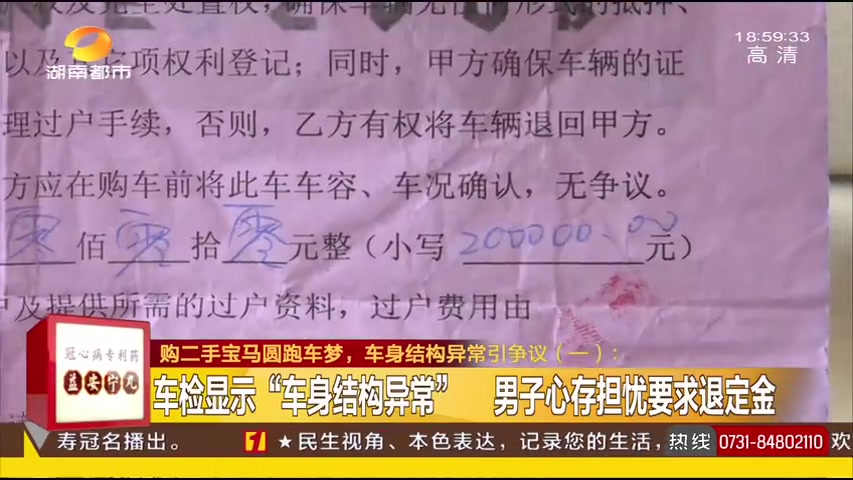 权及完全处置权,确保车辆无任何形式的抵押、
湖南都市
18:59:33
高清
以及其它项权利登记;同时,甲方确保车辆的证
理过户手续,否则,乙方有权将车辆退回甲方。
方应在购车前将此车车容、车况确认,无争议。
零佰零拾零元整(小写 200000.00元)
户及提供所需的过户资料,过户费用由
冠心病专利药
益安宁丸
购二手宝马圆跑车梦,车身结构异常引争议(一):
车检显示“车身结构异常” 男子心存担忧要求退定金
寿冠名播出。
★民生视角、本色表达,记录您的生活,
热线 0731-84802110 欢